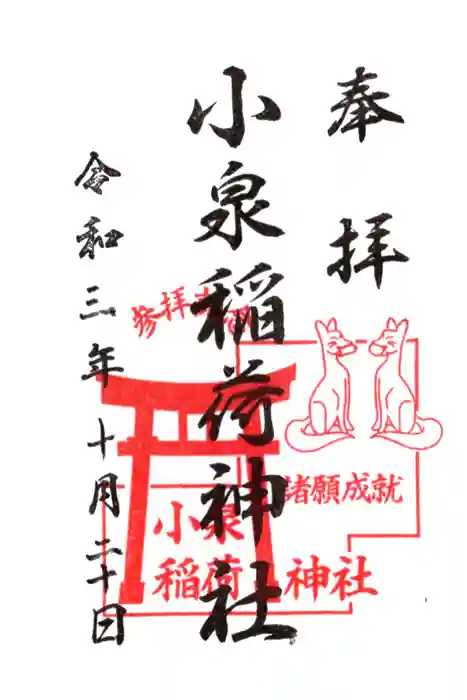 奉拝
小泉稲荷神社
令和三年十月二十日
参拝
諸願成就
小泉
稲荷神社